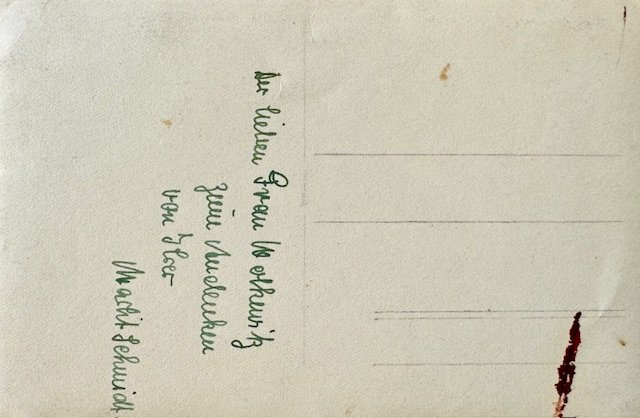 Der lieben Frau
zum Andenken
von Ihrer
Schmidt